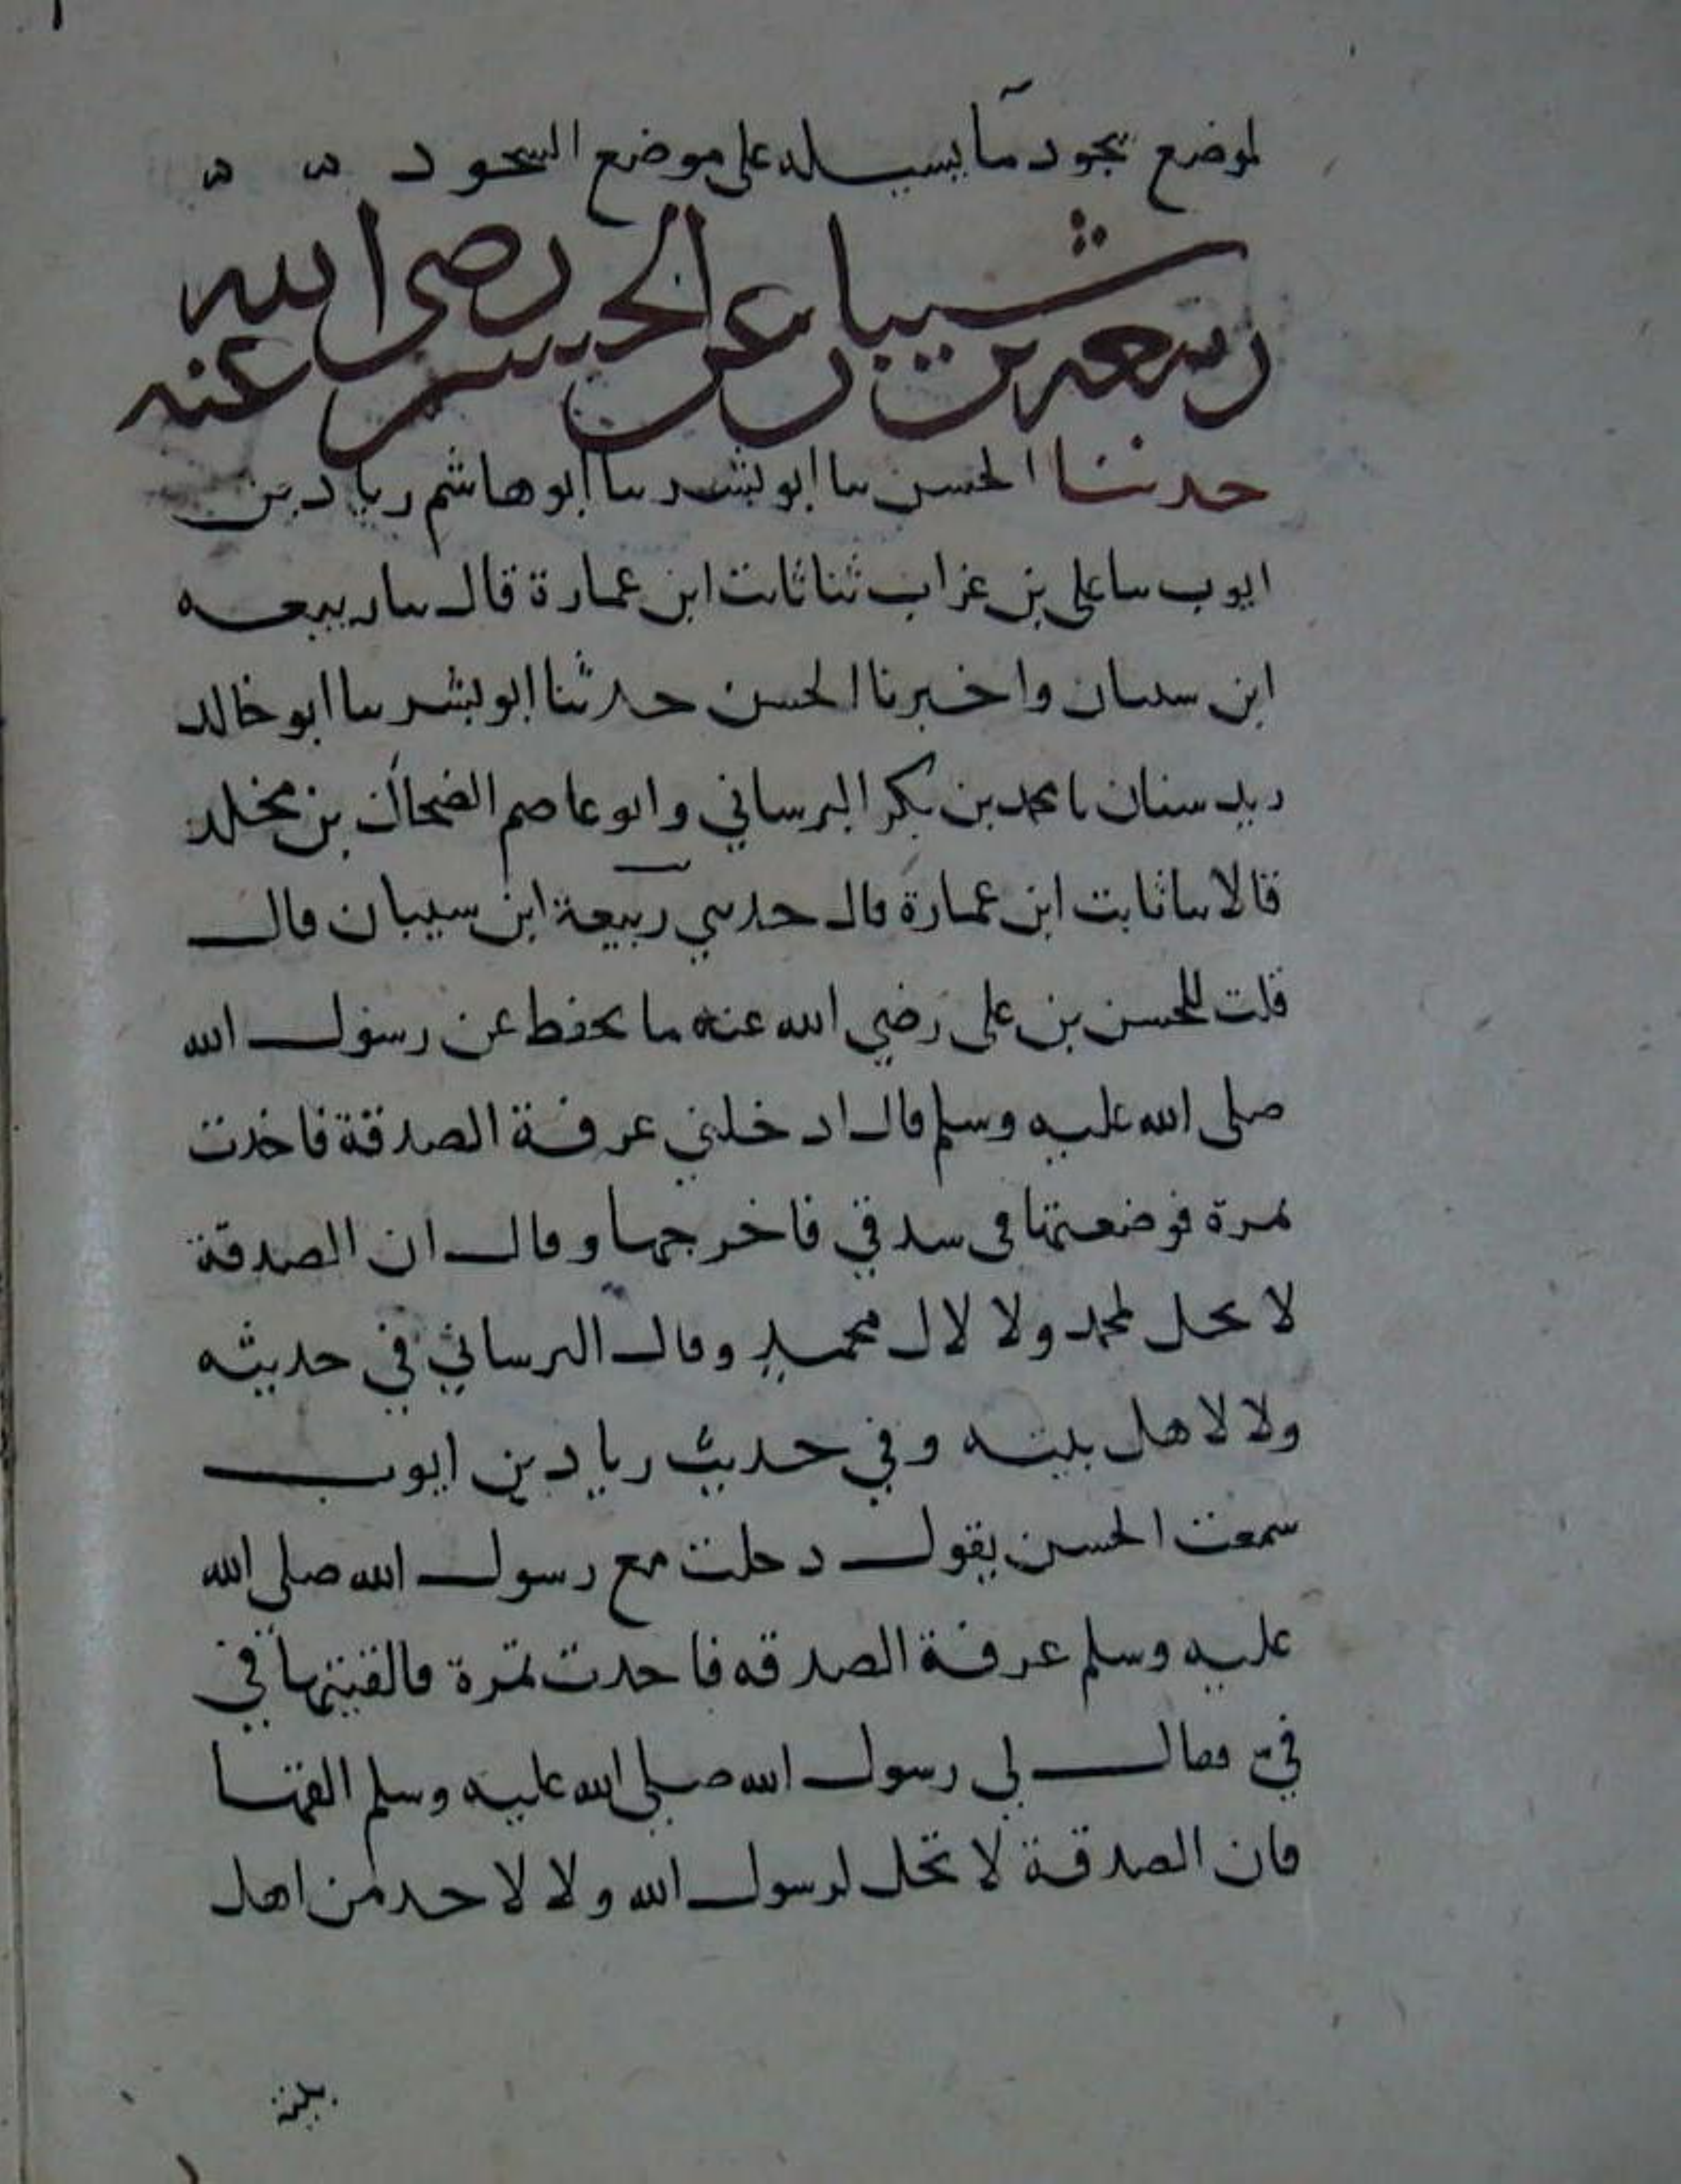 لموضع سجود ما يسيله على موضع السجود
ربيعه بن شيبان عن الحسن رضى الله عنه
حدثنا الحسن سا ابو بشر سا ابو هاشم رياد بن
ايوب سا على بن غراب ثنا ثابت ابن عمارة قال سا ربيعه
ابن سيبان واخبرنا الحسن حدثنا ابو بشر سا ابو خالد
يزيد سنان نا محمد بن بكر البرساني وابو عاصم الضحاك بن مخلد
قالا سا ثابت ابن عمارة قال حدسي ربيعة ابن سيبان قال
قلت للحسن بن على رضي الله عنه ما تحفظ عن رسول الله
صلى الله عليه وسلم قال ادخلني غرفة الصدقة فاخذت
تمرة فوضعتها في سدقي فاخرجها وقال ان الصدقة
لا تحل لمحمد ولا لال محمد وقال البرساني في حديثه
ولا لاهل بيته وفي حديث رياد بن ايوب
سمعت الحسن يقول دخلت مع رسول الله صلى الله
عليه وسلم عرفة الصدقه فاخدت تمرة فالقيتها في
في فقال لي رسول الله صلى الله عليه وسلم القها
فان الصدقة لا تحل لرسول الله ولا لاحد من اهل
بيته